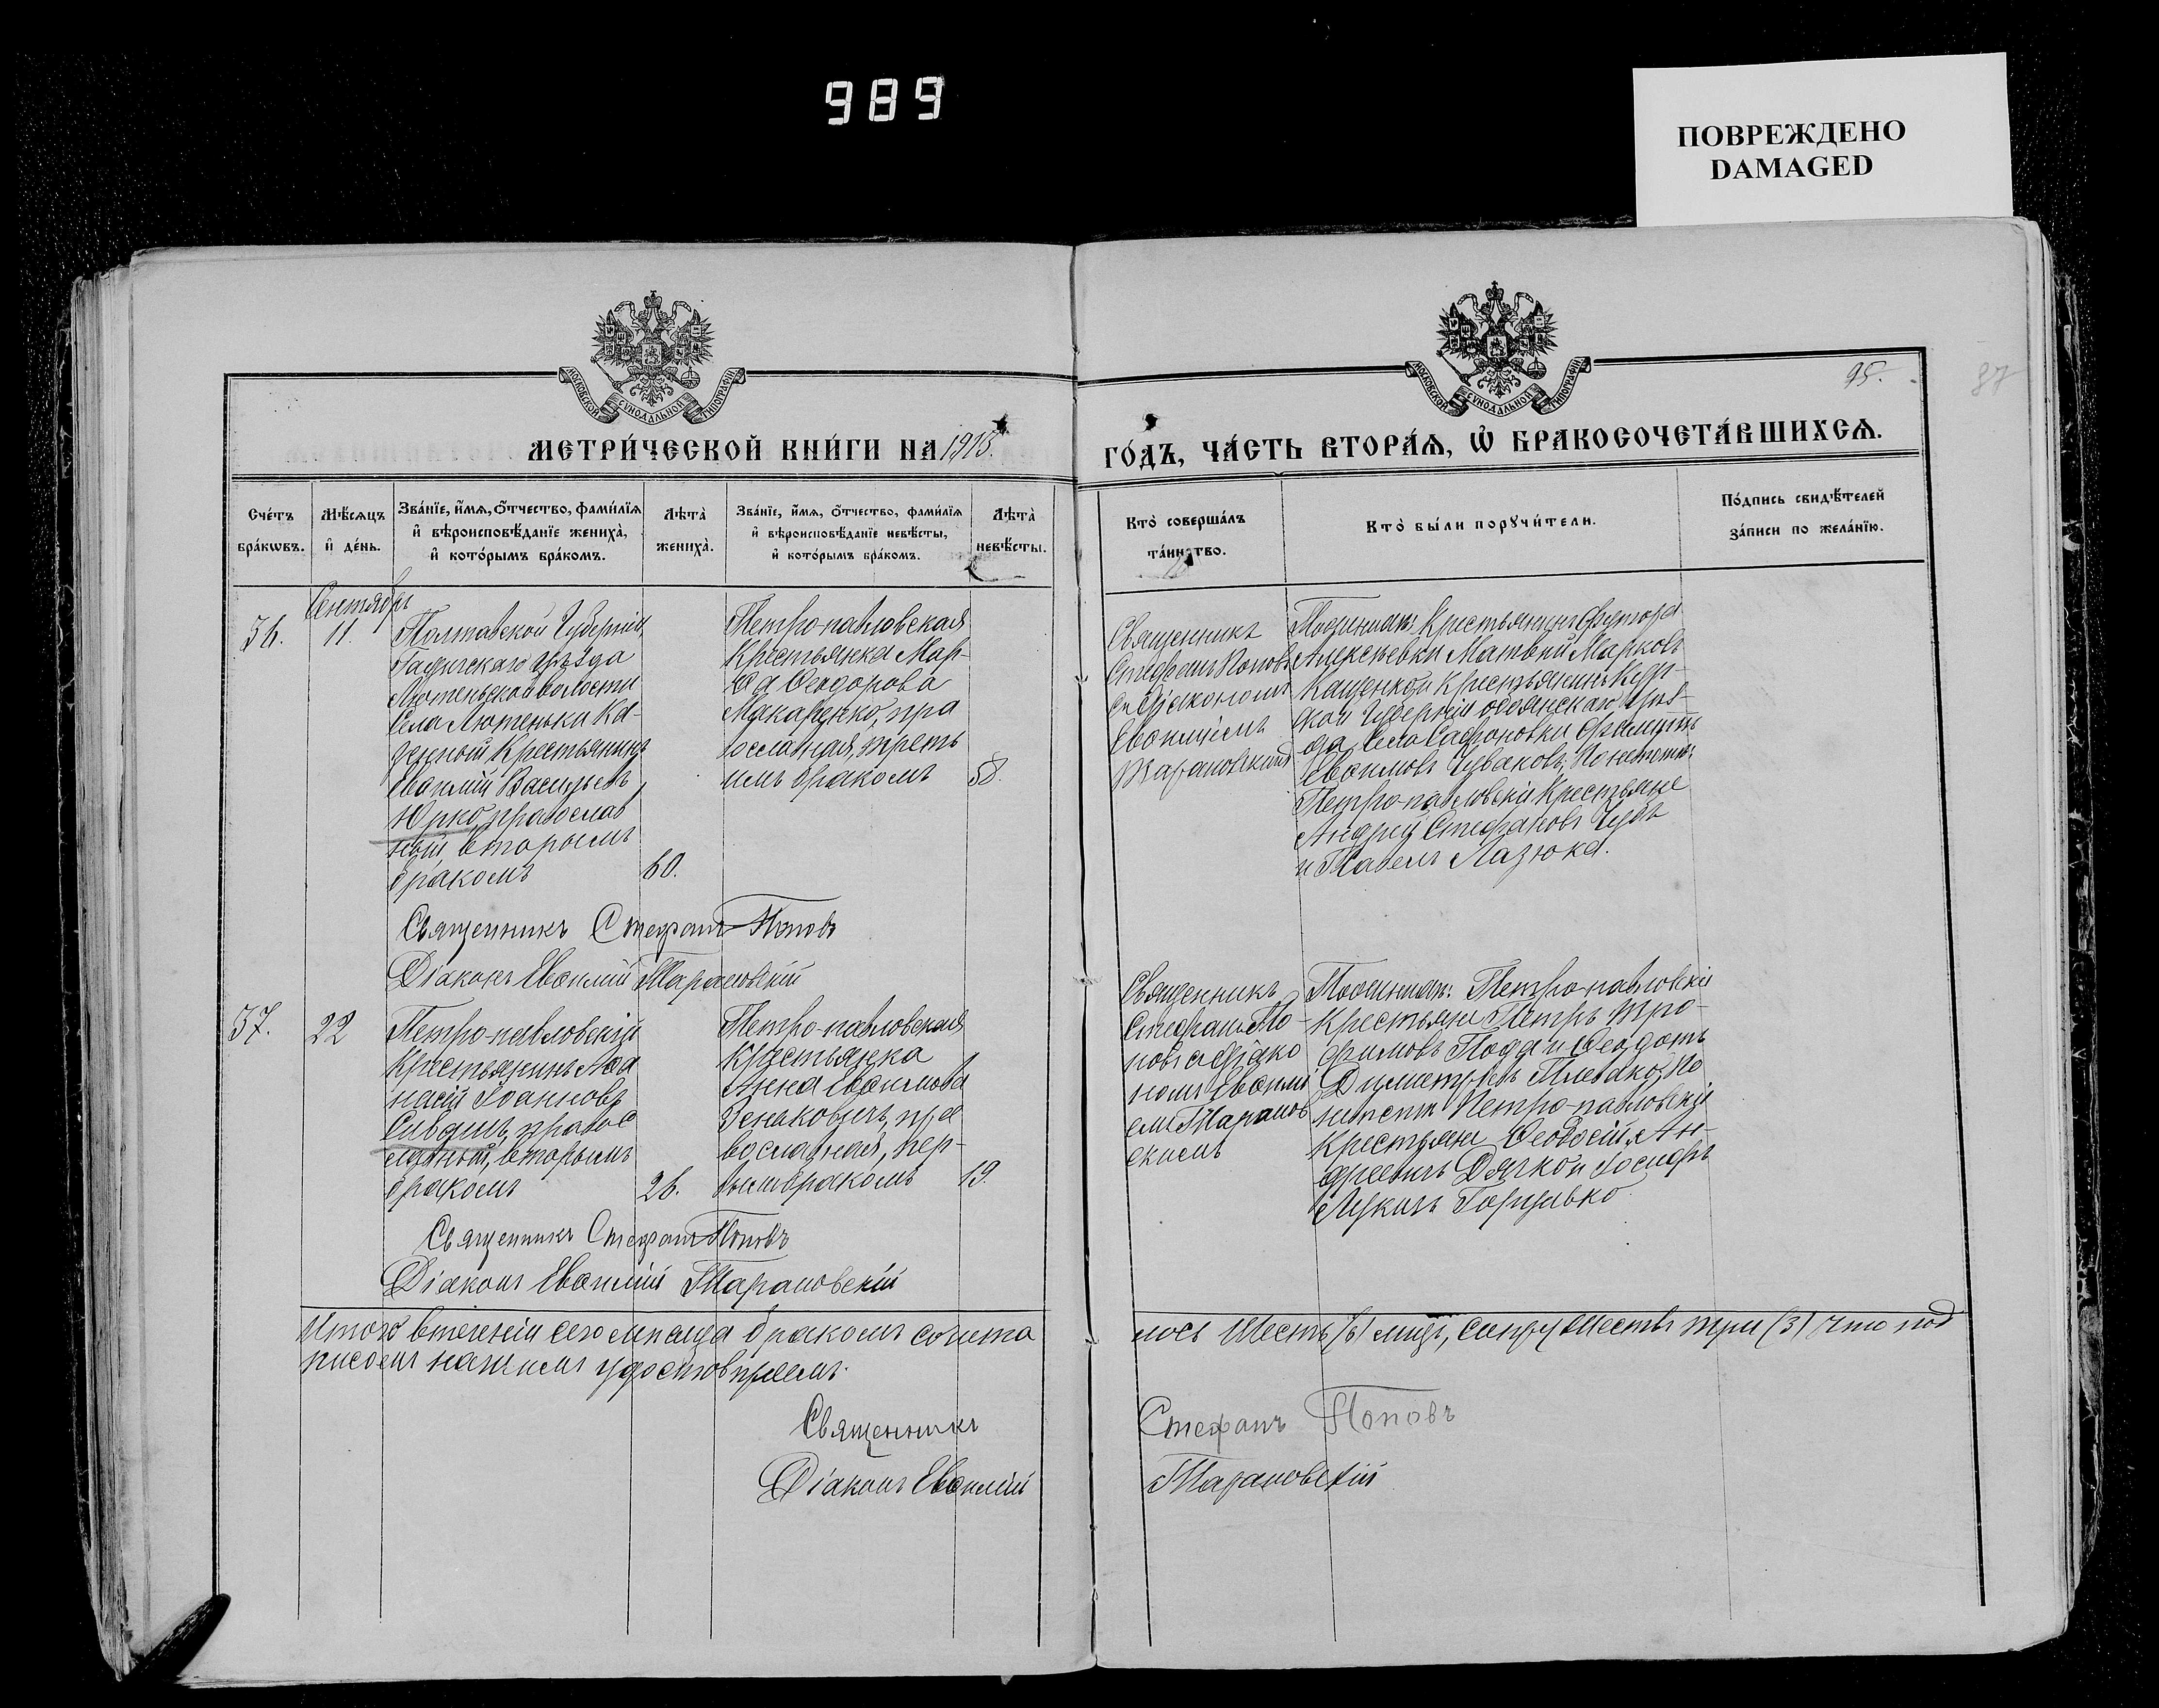 989
ПОВРЕЖДЕНО
DAMAGED
МОСКОВСКОЙ СѴНОДАЛЬНОЙ ТИПОГРАФІИ
МОСКОВСКОЙ СѴНОДАЛЬНОЙ ТИПОГРАФІИ
95.
87
МЕТРИ́ЧЕСКОЙ КНИ́ГИ НА 1915.
ГО́ДЪ, ЧА́СТЬ ВТОРА́Я, Ѡ БРАКОСОЧЕТА́ВШИХСЯ.
Сче́тъ бра́кѡвъ.
Мѣ́сяцъ и де́нь.
Зва́нїе, и́мя, о́тчество, фами́лїя
и вѣроисповѣ́данїе жениха̀,
и кото́рымъ бра́комъ.
Лѣта̀ жениха̀.
Зва́нїе, и́мя, о́тчество, фами́лїя
и вѣроисповѣ́данїе невѣ́сты,
и кото́рымъ бра́комъ.
Лѣта̀ невѣ́сты.
Кто̀ соверша́лъ та́инство.
Кто̀ бы́ли поручи́тели.
По́дпись свидѣ́телей
за́писи по жела́нїю.
Сентябрь
36.
11.
Полтавской Губерніи,
Гадячскаго уѣзда
Лютенской волости
Села Лютеньки Ка-
зенной Крестьянинъ
Евѳимій Васильевъ
Юрко, православ
ный вторымъ
бракомъ
60.
Петро-павловская
Крестьянка Мар-
ѳа Ѳеодорова
Макаренко, пра
вославная, треть
имъ бракомъ
58.
Священникъ
Стефанъ Поповъ
съ Діакономъ
Евѳиміемъ
Тарановскимъ
По женихѣ: Крестьянинъ хутора
Алексѣевки Матвѣй Марковъ
Кащенко и Крестьянинъ Кур-
ской Губерніи уѣз-
да, Села Сафоновки Филиппъ
Евѳимовъ Чуваковъ, По невѣстѣ:
Петро-павловскіе Крестьяне
Андрей Стефановъ Чубъ
и Павелъ Лазюка.
Священникъ Стефанъ Поповъ
Діаконъ Евѳимій Тарановскій
37.
22
Петро-павловскій
Крестьянинъ Аѳа
насій Іоанновъ
Сивашъ, правос
лавный, вторымъ
бракомъ
26.
Петро-павловская
Крестьянка
Анна Евѳимова
Зенаковичъ, пра
вославная, пер-
вымъ бракомъ
19.
Священникъ
Стефанъ По-
повъ съ Діако
номъ Евѳимі
емъ Таранов
скимъ
По женихѣ: Петро-павловскіе
Крестьяне Петръ Тро-
фимовъ и Ѳеодотъ
Димитріевъ По
невѣстѣ Петро-павловскіе
Крестьяне Ѳеодосій Ан-
дреевичъ Дячко и Іосифъ
Лукичъ
Священникъ Стефанъ Поповъ
Діаконъ Евѳимій Тарановскій
Итого втеченіи сего мѣсяца бракомъ сочета
лось Шесть (6) лицъ, супружествъ три (3) Что под
писомъ нашимъ удостовѣряемъ.
Священникъ Стефанъ Поповъ
Діаконъ Евѳимій Тарановскій